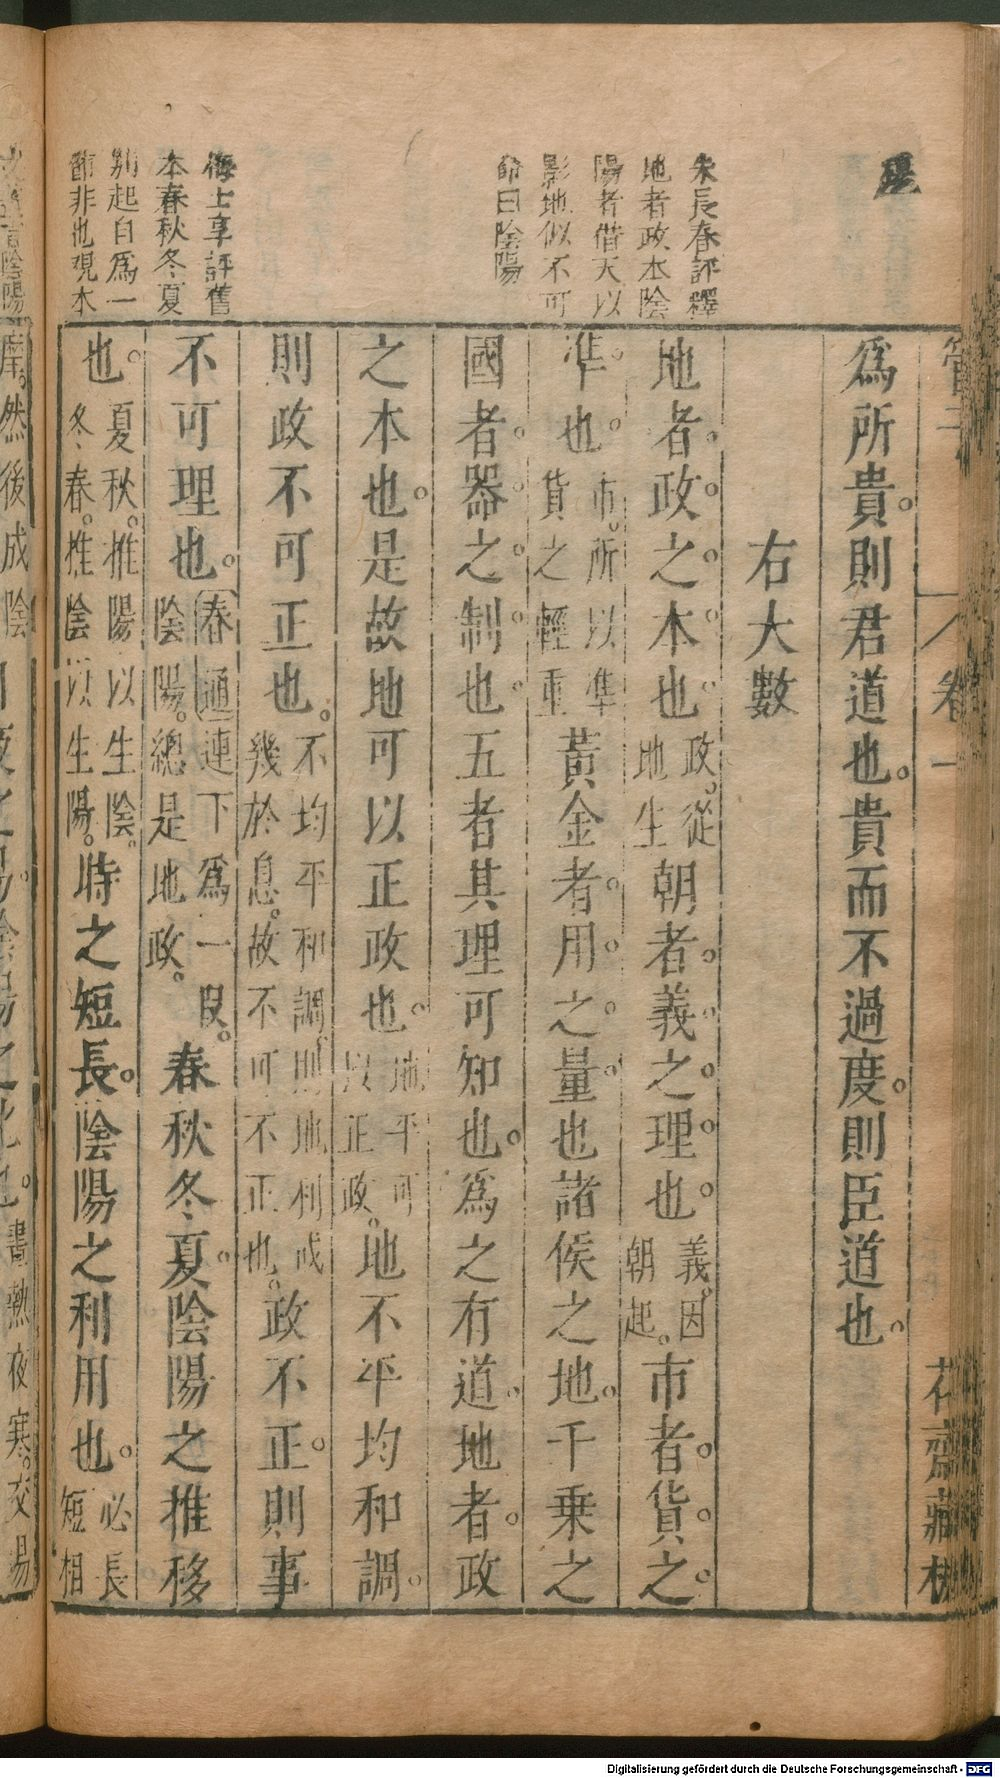 陽
朱長春評釋
地者政本陰
陽者借天以
影地似不可
命曰陰陽
梅士享評舊
本春秋冬夏
別起自爲一
節非也觀本
管子 卷一 花齋藏板
爲所貴則君道也貴而不過度則臣道也
右大數
地者政之本也政從地生朝者義之理也義因朝起市者貨之
準也市所以準貨之輕重黃金者用之量也諸侯之地千乘之
國者器之制也五者其理可知也爲之有道地者政
之本也是故地可以正政也地平可以正政地不平均和調
則政不可正也不均平和調則地利或幾於息故不可不正也政不正則事
不可理也春通連下爲一段陰陽總是地政春秋冬夏陰陽之推移
也夏秋推陽以生陰冬春推陰以生陽時之短長陰陽之利用也必長短相
摩然後成陰
之化也晝熱夜寒交易
Digitalisierung gefördert durch die Deutsche Forschungsgemeinschaft - DFG